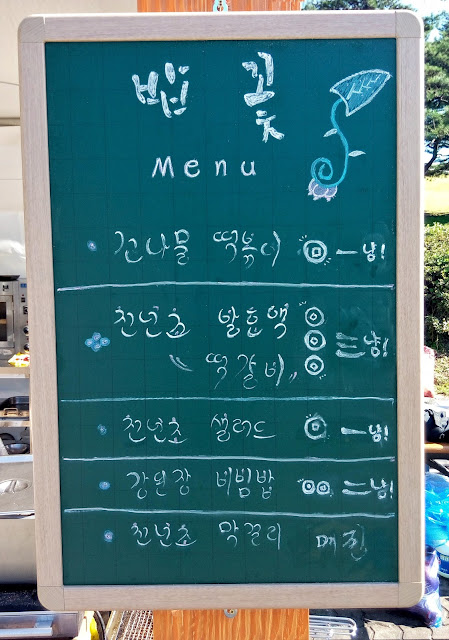 꽃
Menu
건나물 떡볶이 一냥!
천년초 발효액
떡갈비 三냥!
천년초 샐러드 一냥!
강된장 비빔밥 二냥!
천년초 막걸리 매진